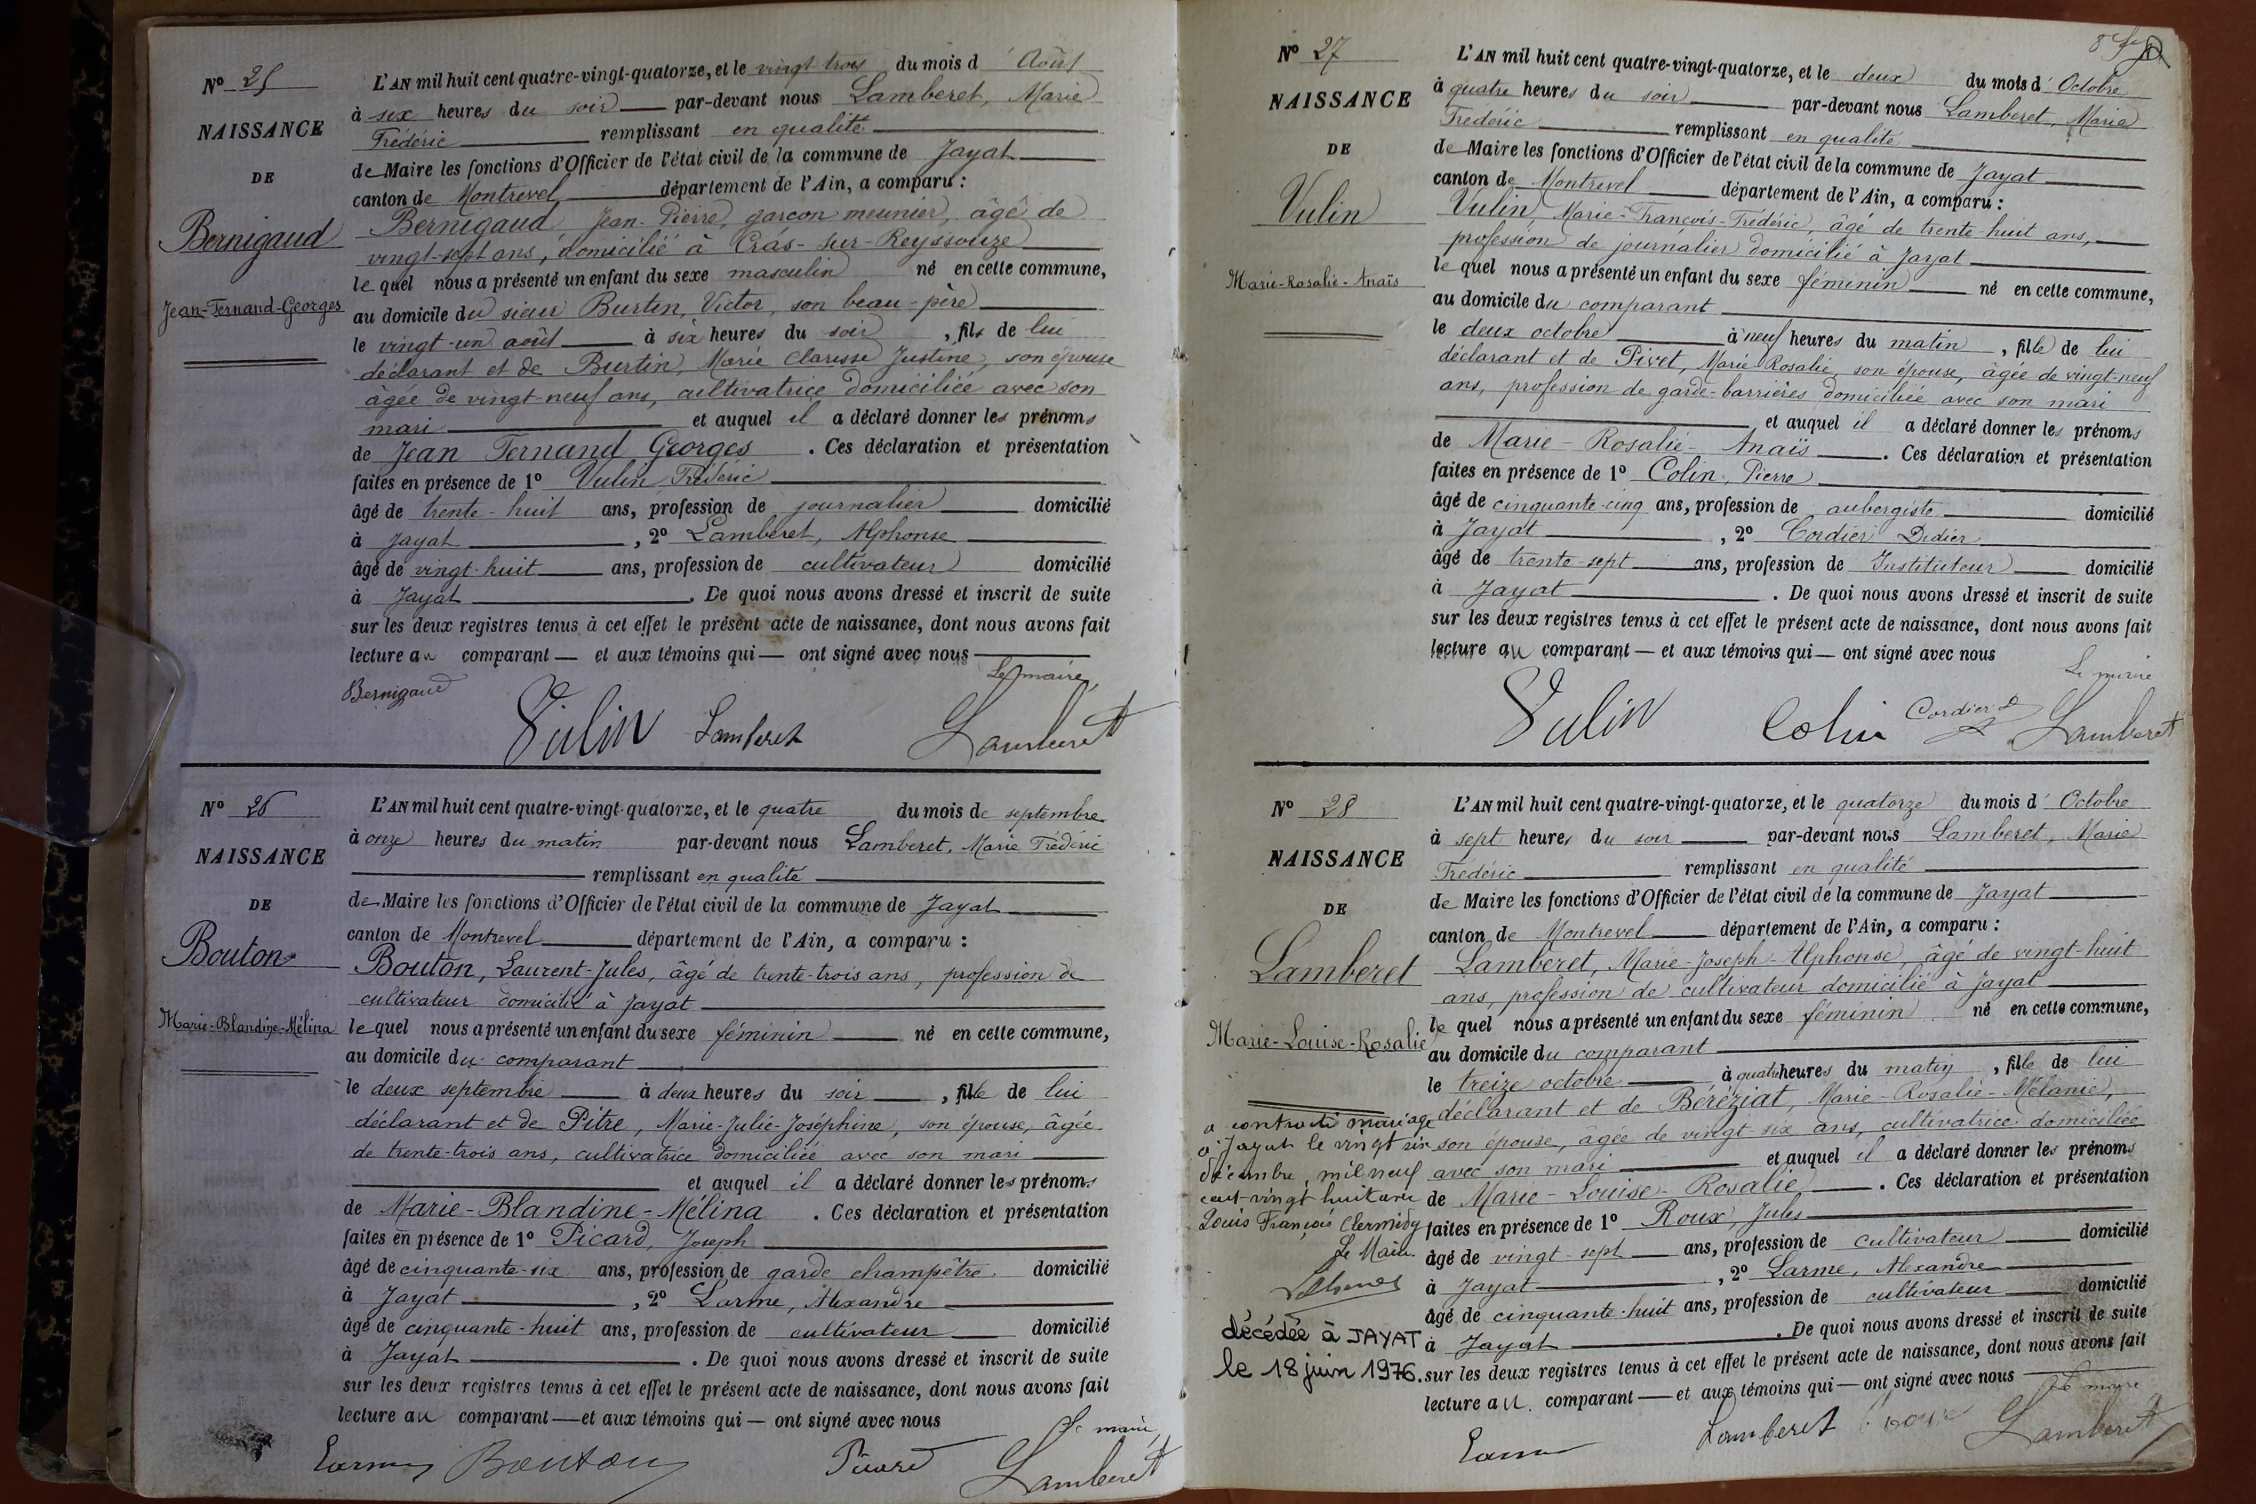 N° 25
NAISSANCE
DE
Bernigaud
Jean-Fernand-Georges
L'AN mil huit cent quatre-vingt-quatorze, et le vingt trois du mois d' Août
à six heures du soir par-devant nous Lamberet, Marie
Frédéric remplissant en qualité
de Maire les fonctions d'Officier de l'état civil de la commune de Jayat
canton de Montrevel, département de l'Ain, a comparu :
Bernigaud, Jean-Pierre, garçon meunier, âgé de
vingt-sept ans, domicilié à Crás-sur-Reyssouze
le quel nous a présenté un enfant du sexe masculin né en cette commune,
au domicile du sieur Burtin, Victor, son beau-père
le vingt-un août à six heures du soir, fils de lui
déclarant et de Burtin, Marie Clarisse Justine, son épouse
âgée de vingt-neuf ans, cultivatrice domiciliée avec son
mari et auquel il a déclaré donner les prénoms
de Jean Fernand Georges. Ces déclaration et présentation
faites en présence de 1° Vulin Frédéric
âgé de trente-huit ans, profession de journalier domicilié
à Jayat, 2° Lamberet, Alphonse
âgé de vingt-huit ans, profession de cultivateur domicilié
à Jayat. De quoi nous avons dressé et inscrit de suite
sur les deux registres tenus à cet effet le présent acte de naissance, dont nous avons fait
lecture au comparant et aux témoins qui ont signé avec nous
Le maire,
Bernigaud
Vulin Lamberet Lamberet
N° 26
NAISSANCE
DE
Bouton
Marie-Blandine-Mélina
L'AN mil huit cent quatre-vingt-quatorze, et le quatre du mois de septembre
à onze heures du matin par-devant nous Lamberet, Marie Frédéric
remplissant en qualité
de Maire les fonctions d'Officier de l'état civil de la commune de Jayat
canton de Montrevel département de l'Ain, a comparu :
Bouton, Laurent-Jules, âgé de trente-trois ans, profession de
cultivateur domicilié à Jayat
le quel nous a présenté un enfant du sexe féminin né en cette commune,
au domicile du comparant
le deux septembre à deux heures du soir, fille de lui
déclarant et de Pitre, Marie-Julie-Joséphine, son épouse, âgée
de trente-trois ans, cultivatrice domiciliée avec son mari
et auquel il a déclaré donner les prénoms
de Marie-Blandine-Mélina. Ces déclaration et présentation
faites en présence de 1° Picard, Joseph
âgé de cinquante-six ans, profession de garde champêtre domicilié
à Jayat, 2° Larme, Alexandre
âgé de cinquante-huit ans, profession de cultivateur domicilié
à Jayat. De quoi nous avons dressé et inscrit de suite
sur les deux registres tenus à cet effet le présent acte de naissance, dont nous avons fait
lecture au comparant et aux témoins qui ont signé avec nous
Le maire,
Larme Bouton Picard Lamberet
N° 27
NAISSANCE
DE
Vulin
Marie-Rosalie-Anaïs
L'AN mil huit cent quatre-vingt-quatorze, et le deux du mois d' Octobre
à quatre heures du soir par-devant nous Lamberet, Marie
Frédéric remplissant en qualité
de Maire les fonctions d'Officier de l'état civil de la commune de Jayat
canton de Montrevel département de l'Ain, a comparu :
Vulin, Marie-François-Frédéric, âgé de trente-huit ans,
profession de journalier domicilié à Jayat
le quel nous a présenté un enfant du sexe féminin né en cette commune,
au domicile du comparant
le deux octobre à neuf heures du matin, fille de lui
déclarant et de Pivet, Marie Rosalie, son épouse, âgée de vingt-neuf
ans, profession de garde-barrières domiciliée avec son mari
et auquel il a déclaré donner les prénoms
de Marie-Rosalie-Anaïs. Ces déclaration et présentation
faites en présence de 1° Colin, Pierre
âgé de cinquante-cinq ans, profession de aubergiste domicilié
à Jayat, 2° Cordier Didier
âgé de trente-sept ans, profession de Instituteur domicilié
à Jayat. De quoi nous avons dressé et inscrit de suite
sur les deux registres tenus à cet effet le présent acte de naissance, dont nous avons fait
lecture au comparant et aux témoins qui ont signé avec nous
Le maire
Vulin Colin Cordier D Lamberet
N° 28
NAISSANCE
DE
Lamberet
Marie-Louise-Rosalie
a contracté mariage
à Jayat le vingt six
décembre, mil neuf
cent-vingt huit avec
Louis François Clermidy
Le Maire
décédée à JAYAT
le 18 juin 1976.
L'AN mil huit cent quatre-vingt-quatorze, et le quatorze du mois d' Octobre
à sept heures du soir par-devant nous Lamberet, Marie
Frédéric remplissant en qualité
de Maire les fonctions d'Officier de l'état civil de la commune de Jayat
canton de Montrevel département de l'Ain, a comparu :
Lamberet, Marie-Joseph-Alphonse, âgé de vingt-huit
ans, profession de cultivateur domicilié à Jayat
le quel nous a présenté un enfant du sexe féminin né en cette commune,
au domicile du comparant
le treize octobre à quatre heures du matin, fille de lui
déclarant et de Béréziat, Marie-Rosalie-Mélanie,
son épouse, âgée de vingt-six ans, cultivatrice domiciliée
avec son mari et auquel il a déclaré donner les prénoms
de Marie-Louise-Rosalie. Ces déclaration et présentation
faites en présence de 1° Roux, Jules
âgé de vingt-sept ans, profession de cultivateur domicilié
à Jayat, 2° Larme, Alexandre
âgé de cinquante-huit ans, profession de cultivateur domicilié
à Jayat. De quoi nous avons dressé et inscrit de suite
sur les deux registres tenus à cet effet le présent acte de naissance, dont nous avons fait
lecture au comparant et aux témoins qui ont signé avec nous
Le maire
Larme Lamberet Roux Lamberet